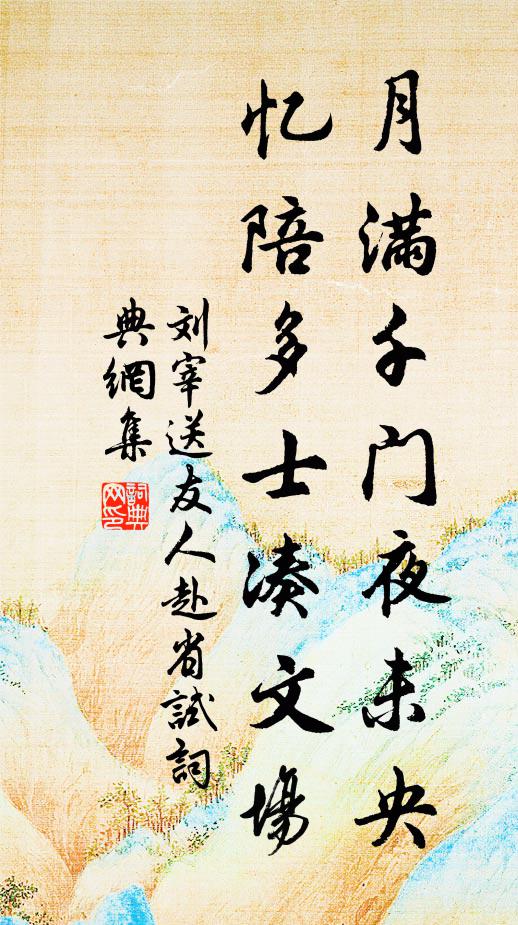 月满千门夜未央
忆陪多士凑文场
刘宰送友人赴省试詞
典網集
詞典
网印